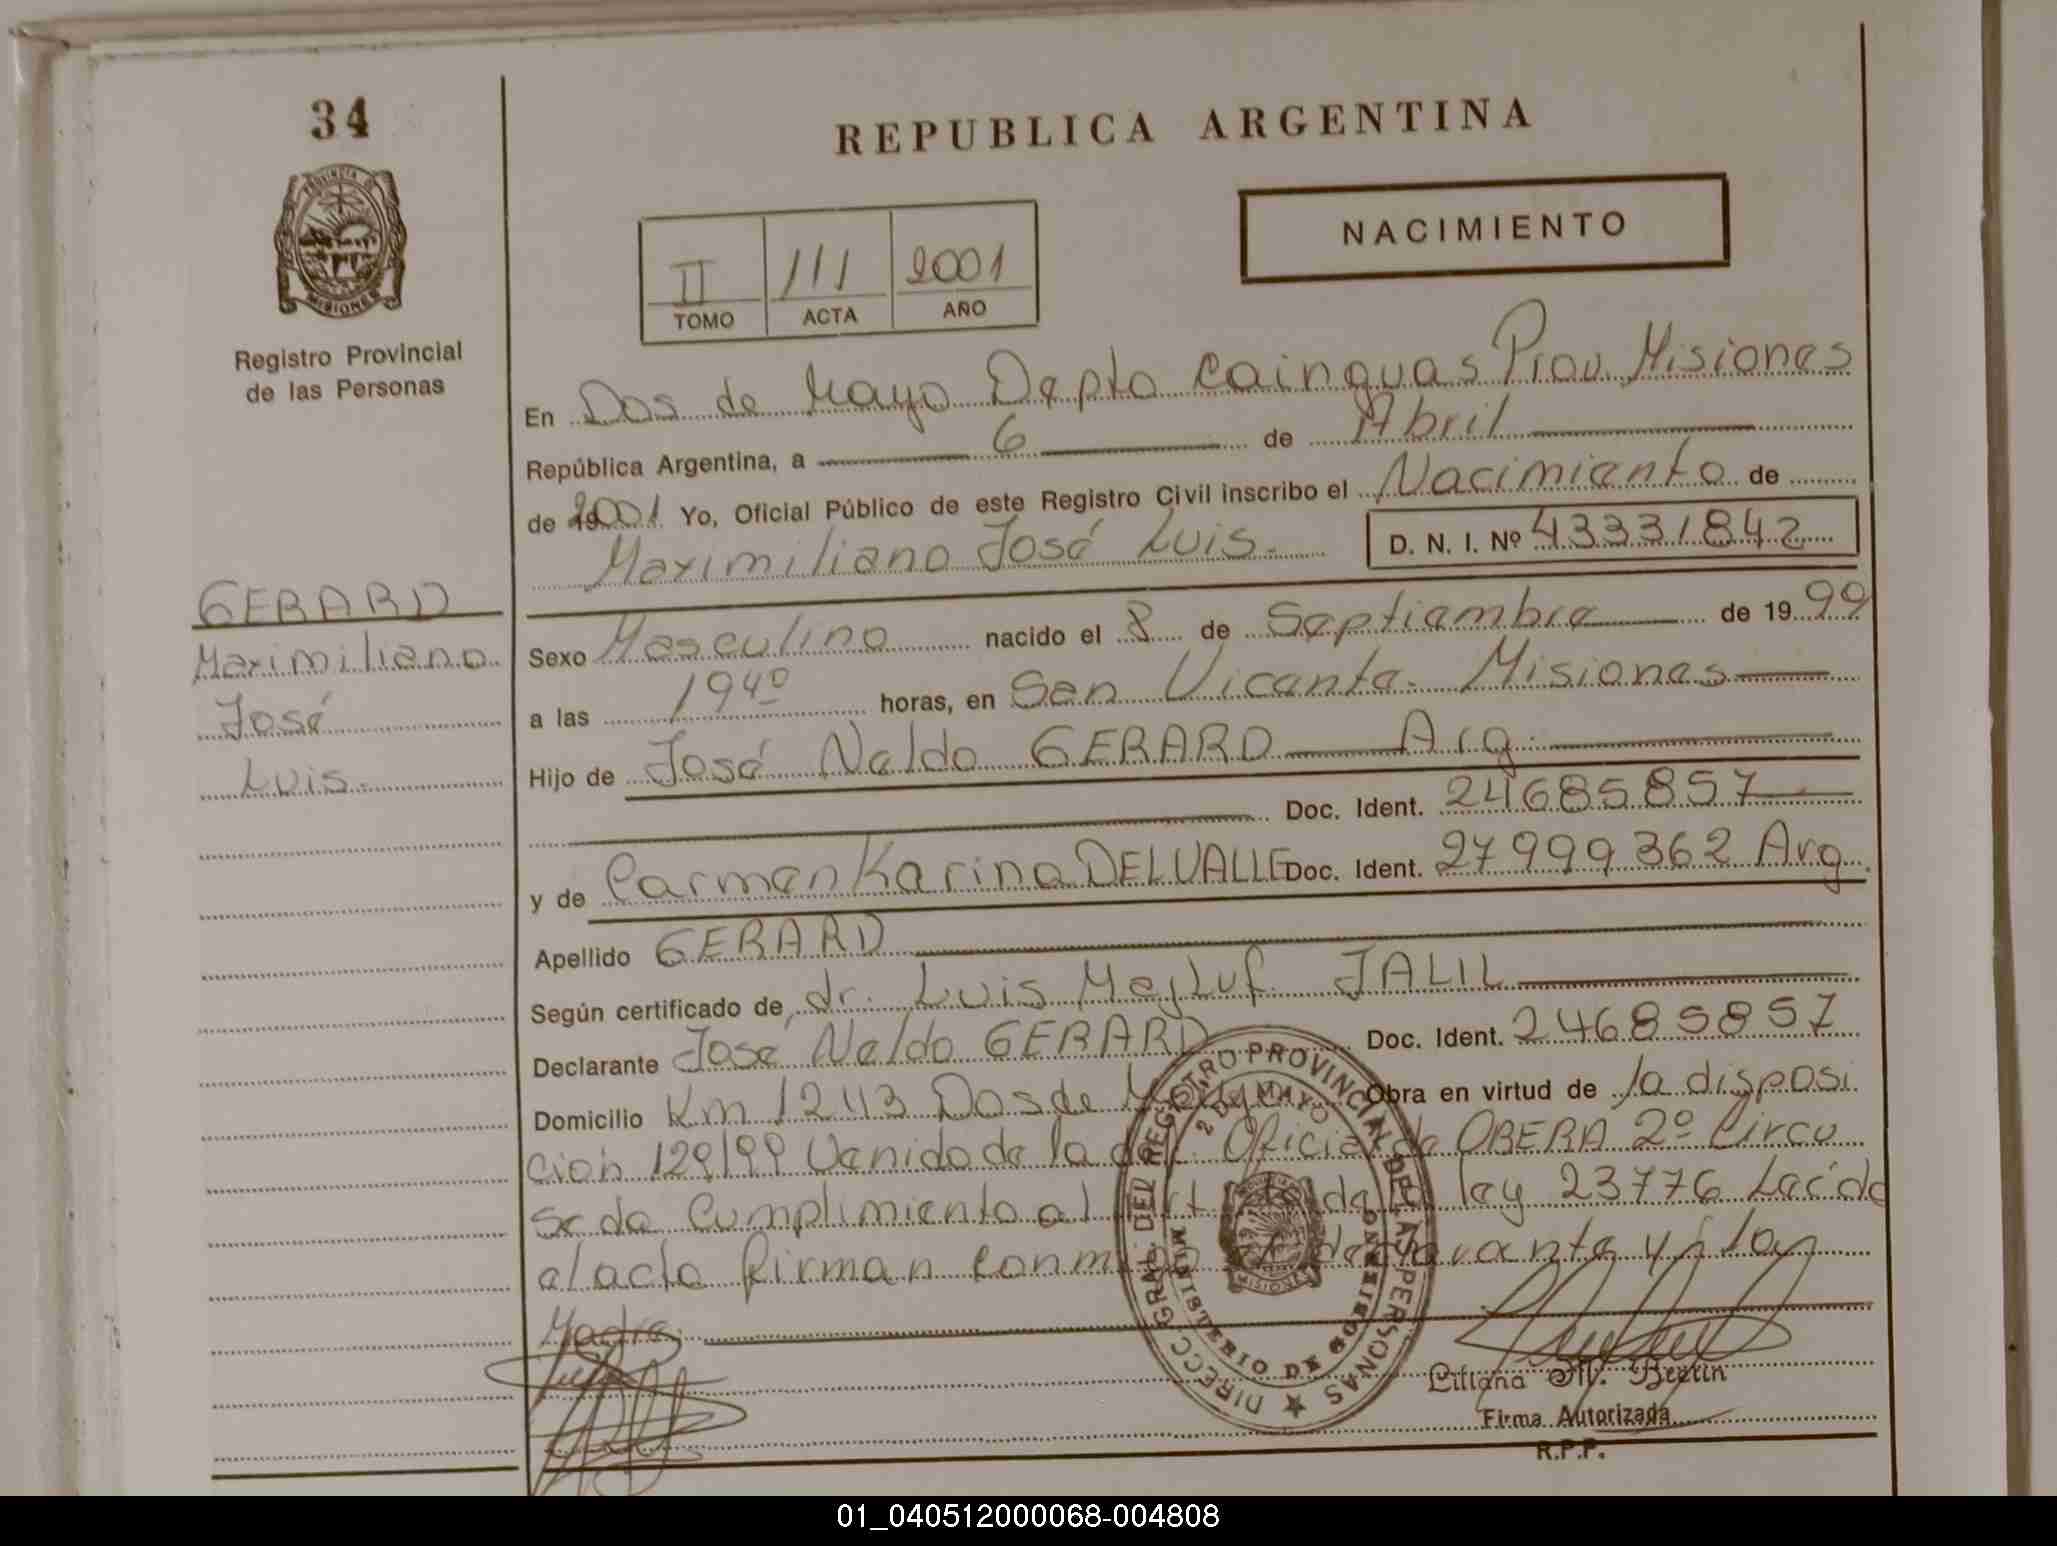 34
PROVINCIA DE
MISIONES
Registro Provincial
de las Personas
GERARD
Maximiliano
José
Luis.-
REPUBLICA ARGENTINA
II 111 2001
TOMO ACTA AÑO
NACIMIENTO
En Dos de Mayo Depto Cainguas Prov. Misiones
República Argentina, a 6 de Abril
de 2001 Yo, Oficial Público de este Registro Civil inscribo el Nacimiento de
Maximiliano José Luis.- D. N. I. Nº 43331842
Sexo Masculino nacido el 8 de Septiembre de 1999
a las 19 40 horas, en San Vicente. Misiones
Hijo de José Naldo GERARD Arg.
Doc. Ident. 24685857
y de Carmen Karina DELVALLE Doc. Ident. 27999362 Arg.
Apellido GERARD
Según certificado de dr. Luis JALIL
Declarante José Naldo GERARD Doc. Ident. 24685857
Domicilio Km 1243 Dos de Mayo Obra en virtud de la disposi
ción 129/99 Venido de la Oficial de OBERA 2º Circu
se da Cumplimiento al de la ley 23776 Leída
el acta firman conmigo el declarante y la
Madre.
DIRECC. GRAL. DEL REGISTRO PROVINCIAL DE LAS PERSONAS
2 DE MAYO
MINISTERIO DE GOBIERNO
MISIONES
Liliana M. Bertin
Firma Autorizada
R.P.P.
01_040512000068-004808